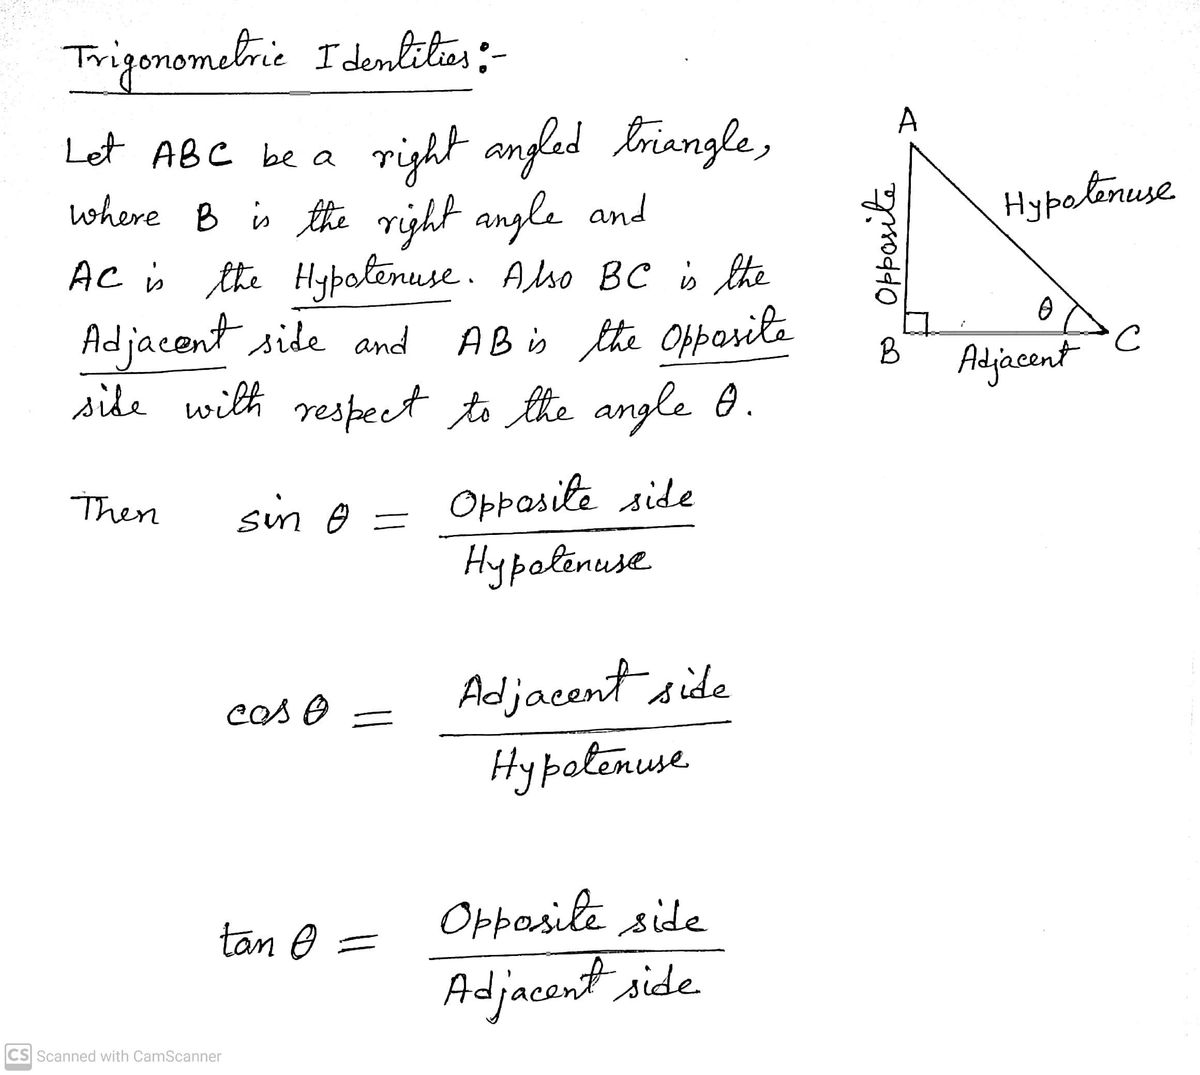 Trigonometric Identities :-
Let ABC be a right angled triangle,
where B is the right angle and
AC is the Hypotenuse. Also BC is the
Adjacent side and AB is the Opposite
side with respect to the angle θ.
A
Opposite
Hypotenuse
θ
B
Adjacent
C
Then sin θ = Opposite side
Hypotenuse
cos θ = Adjacent side
Hypotenuse
tan θ = Opposite side
Adjacent side
CS Scanned with CamScanner